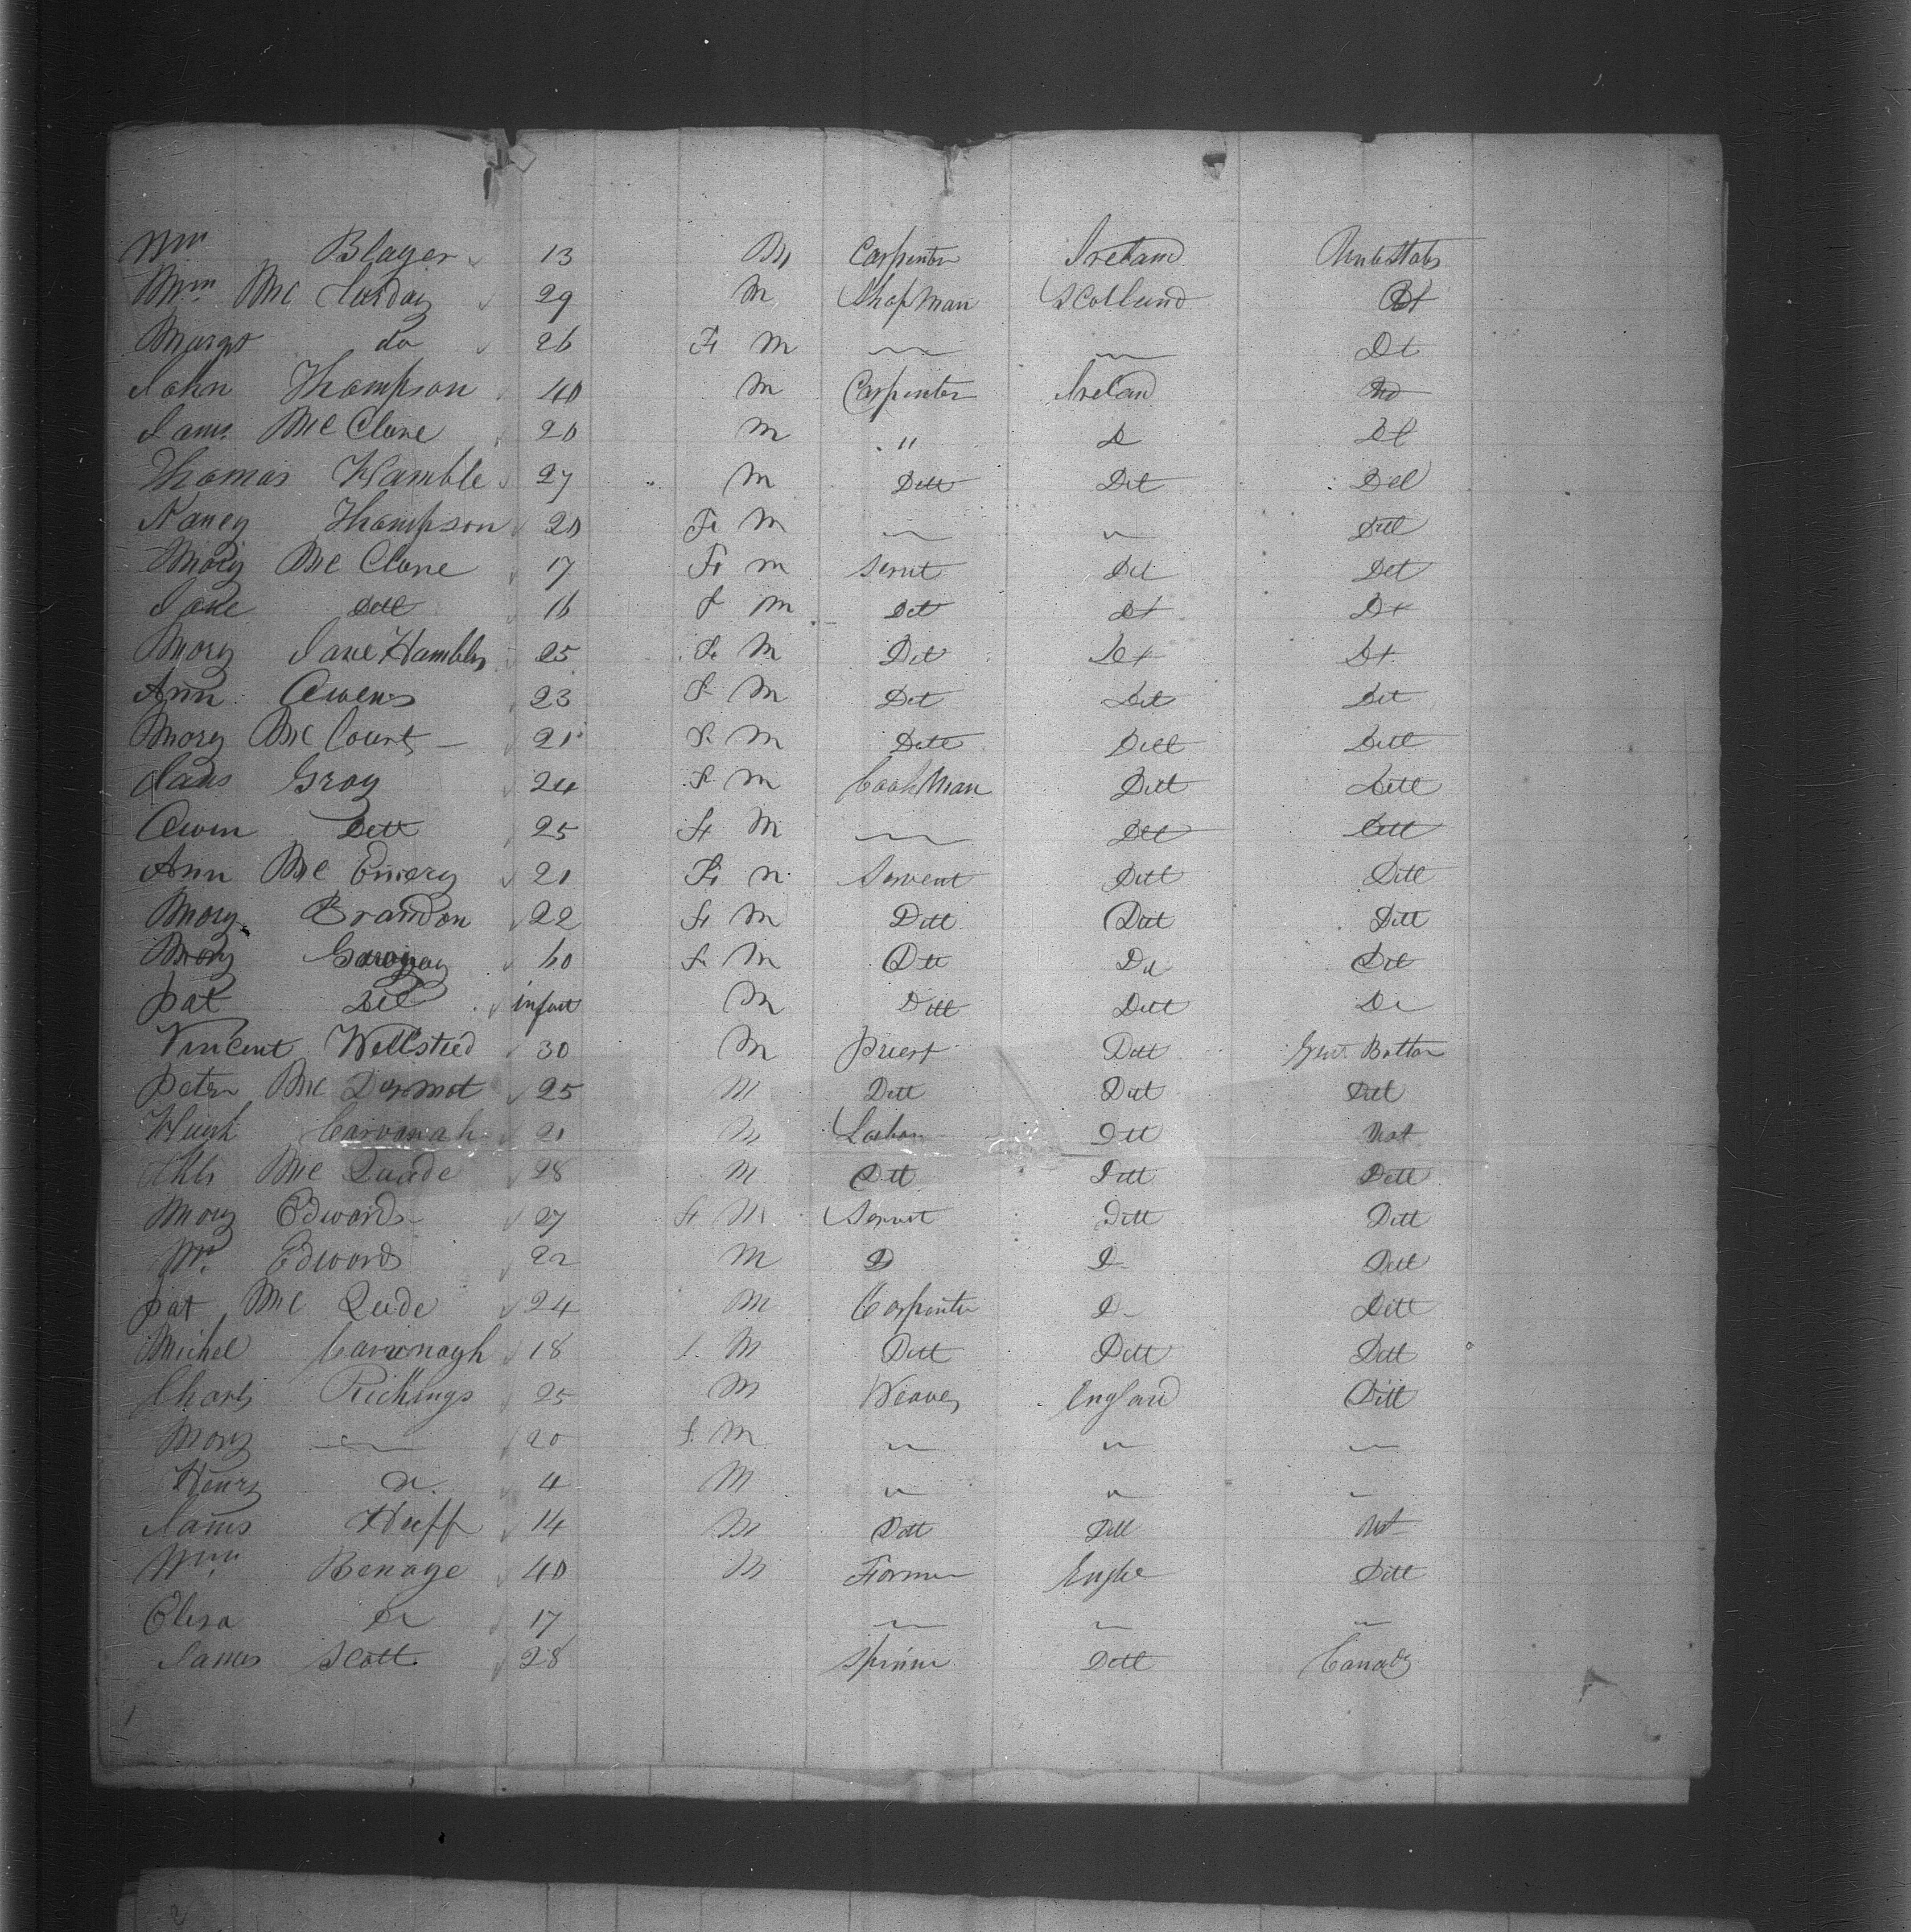 Wm Blayer 13 M Carpenter Ireland
Wm Mc 29 M Shopman Scotland Dt
Margt do 26 Fe M Dt
John Thompson 40 M Carpenter Ireland
Jams Mc Clone 20 M " D Dt
Thomas Hamble 27 M Dett Det Det
Nancy Thompson 20 Fe M Dett
Mary Mc Clone 17 Fe m Servt Det Det
Jane Dett 16 F M Det Dt Dt
Mary Jane Hambly 25 Fe M Det Det Dt
Ann Owens 23 F M Det Det Det
Mary Mc Court 21 F M Dett Dett Dett
Gray 24 F M Dett Dett
Owen Dett 25 Fe M Dett Dett
Ann Mc Emery 21 Fe M Servent Dett Dett
Mary Brandon 22 Fe M Dett Dett Dett
Mary 60 Fe M Dtt De Det
pat Det infant M Dett Dett De
Vincent Wellsteed 30 M priest Dett
Peter Mc Dermot 25 M Dett Dett Dett
Cavanah 21 M Dtt
Mc Quade 28 M Dtt Dett Dett
Mary Edwards 27 Fe M Servet Dett Dett
Edwards 22 M D D Dett
pat Mc Qude 24 M Carpenter D Dett
Michel Cavanagh 18 M Dett Dett Dett
Charls Richings 25 M Weaver England Dett
Mary 20 F M
Henry 4 M
Jams 14 M Dett Dett
Wm Benage 40 M Farmer Dett
Elisa 17
James Scott 28 Spinner Dett Canady